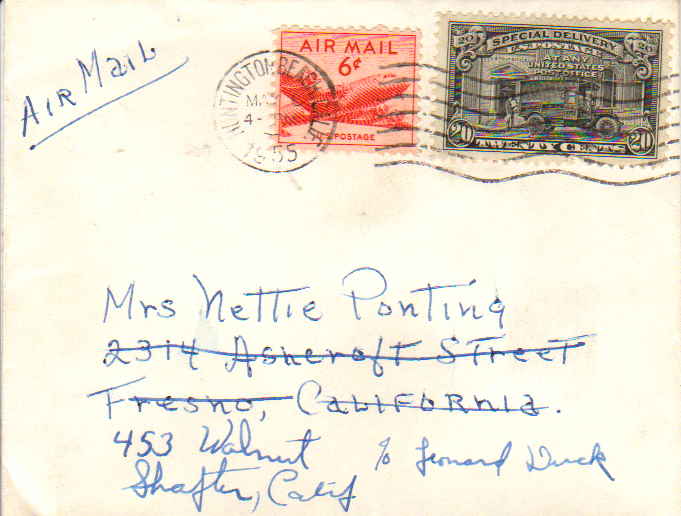 AIR MAIL
AIR MAIL
6¢
POSTAGE
HUNTINGTON BEACH, CALIF.
4-
1955
20 20
SPECIAL DELIVERY
POSTAGE
AT ANY
UNITED STATES
POST OFFICE
20 TWENTY CENTS 20
Mrs Nettie Ponting
2314 Ashcroft Street
Fresno, California.
453 Walnut c/o Leonard Duck
Shafter, Calif